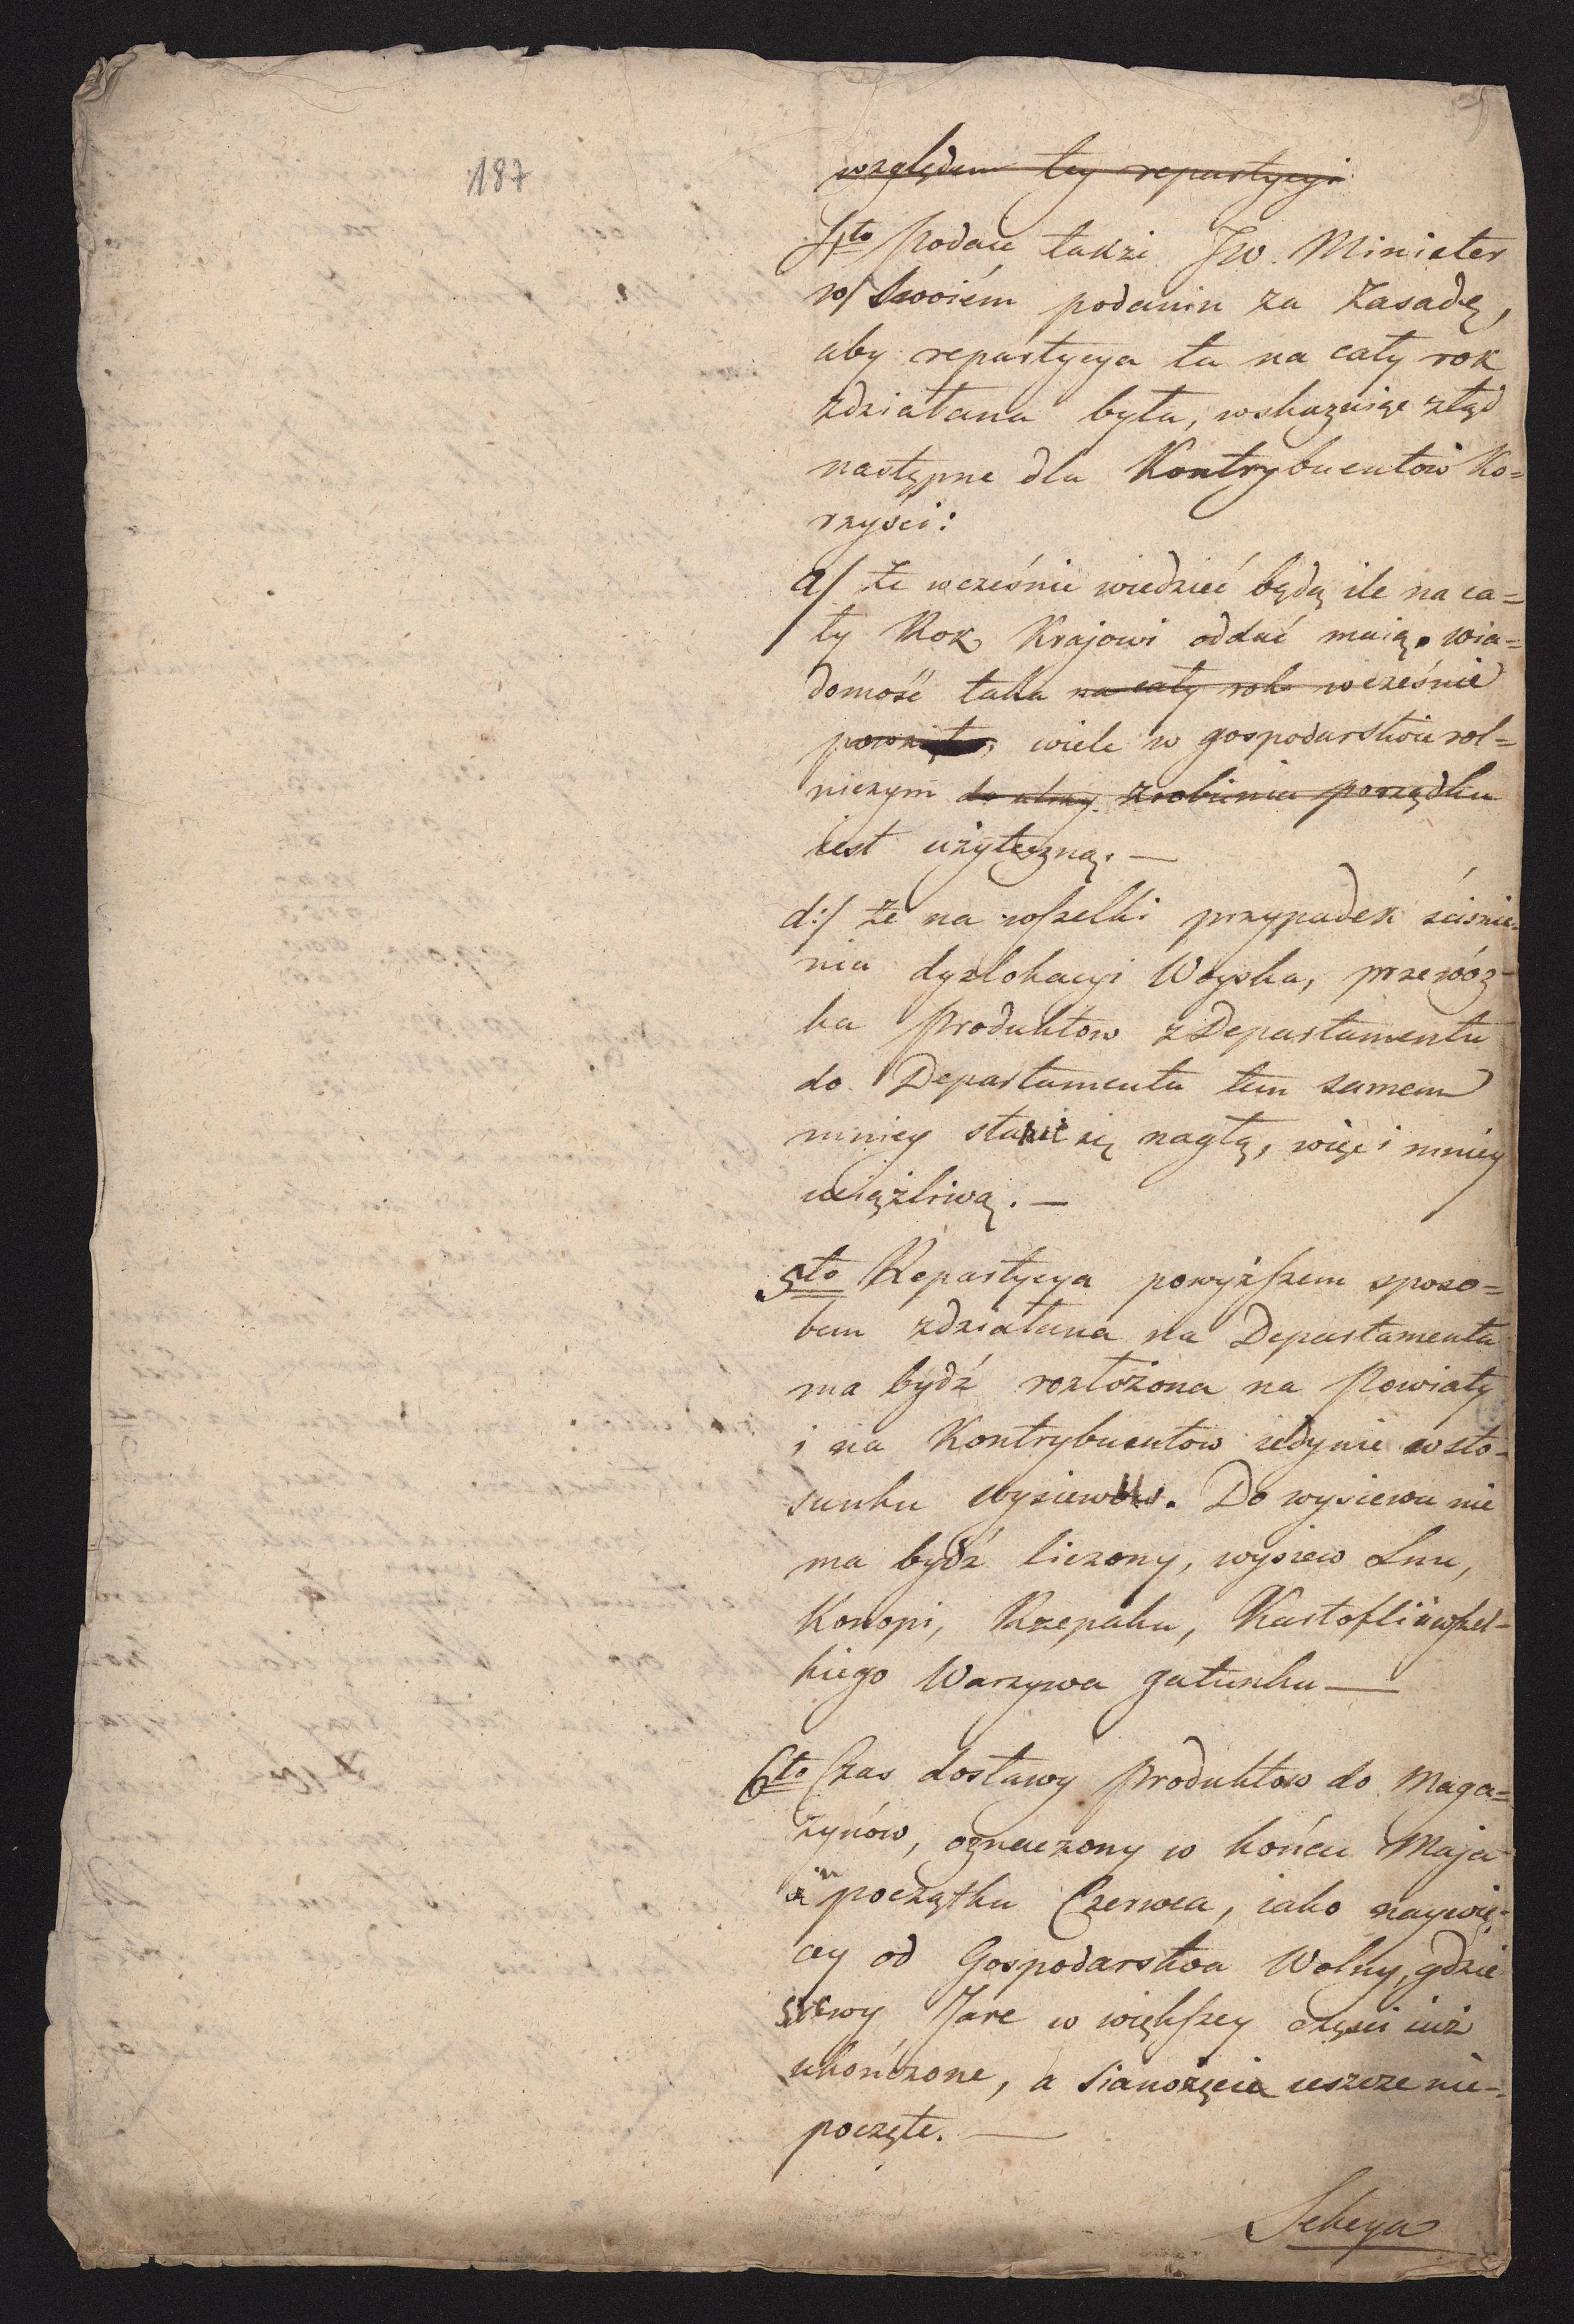 187
względem tey repartycyi
4to Podaie także JW. Minister
w swoiém podaniu za Zasadę,
aby repartycya ta na cały rok
zdziałana była, wskazuiąc ztąd
następne dla Kontrybuentów Ko=
rzyści:
a/ Że wcześnie wiedzieć będą ile na ca=
ły Rok Krajowi oddać maią. wia=
domość taka na cały rok wcześnie
wiele w gospodarstwie rol=
niczym zrobienia porządku
iest użyteczną. —
d:/ Że na wszelki przypadek ściśnie-
nia dyzlokacyi Woyska, przewóz-
ka Produktow z Departamentu
do Departamentu tem samem
mniey stanie się nagłą, więc i mniey
uciążliwą. —
5to Repartycya powyższem sposo=
bem zdziałana na Departamenta
ma bydź rozłożona na Powiaty
i na Kontrybuentow iedynie w sto-
sunku wysiewu. Do wysiewu nie
ma bydź liczony, wysiew Lnu,
Konopi, Rzepaku, Kartofli i wszel-
kiego Warzywa gatunku —
6to Czas dostawy Produktow do Maga=
zynów, oznaczony w końcu Maja
i w początku Czerwca, iako naywię-
cey od Gospodarstwa Wolny, gdzie
siewy Jare w większey części iuż
ukończone, a Sianożęcia ieszcze nie-
poczęte. —
Sekcya